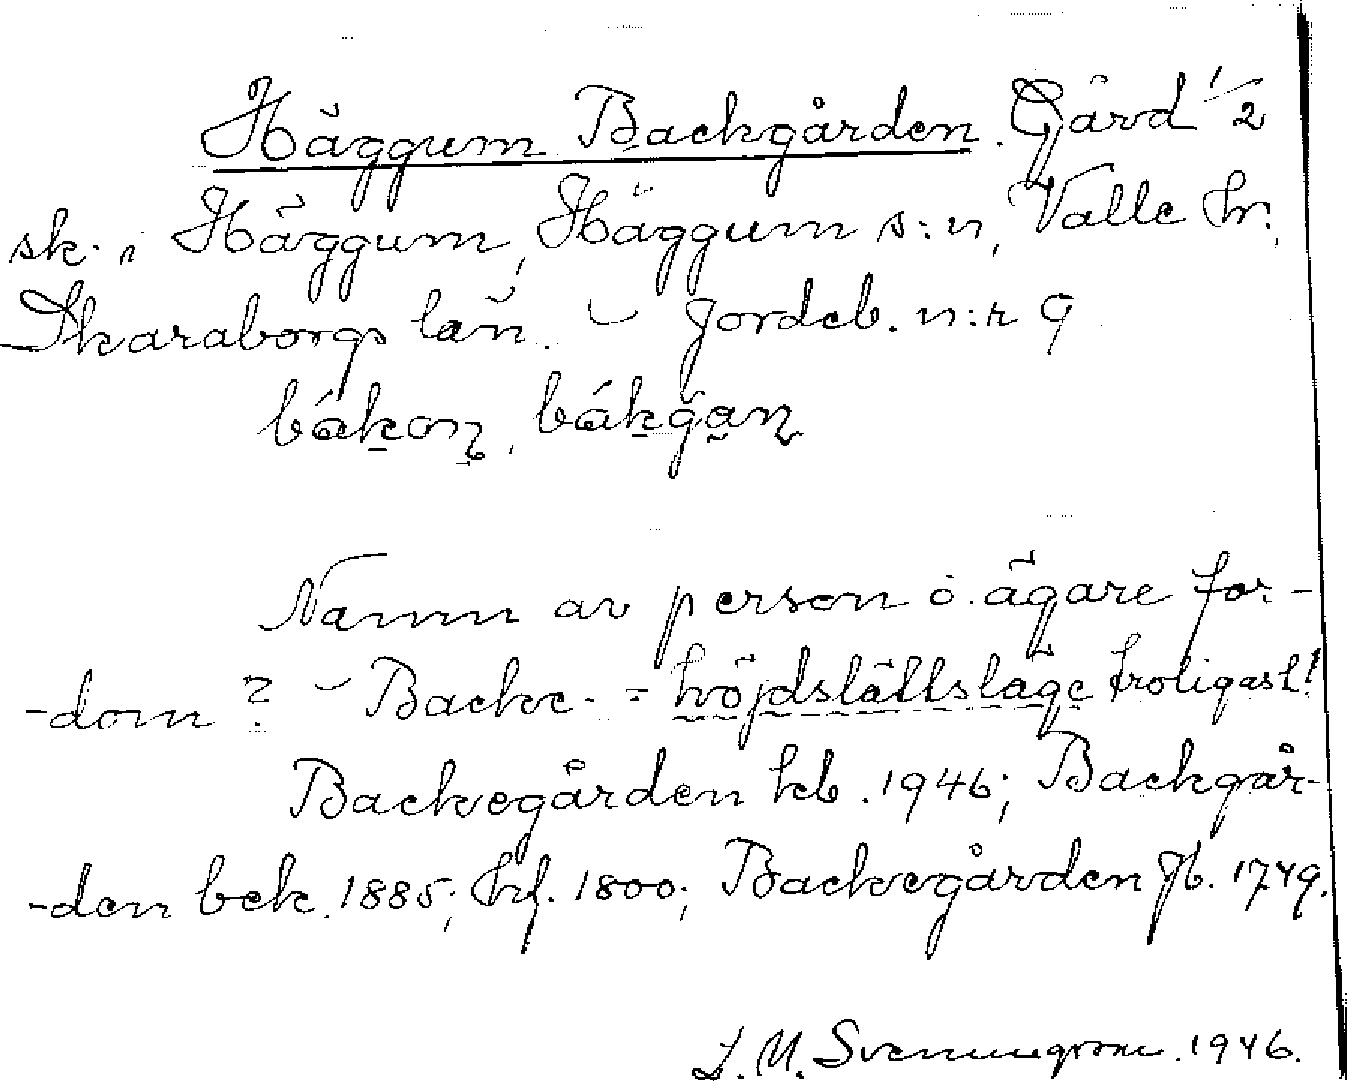 Häggum Backgården. Gård 1/2
sk. i Häggum, Häggum s:n, Valle hr.,
Skaraborgs län. – Jordeb. n:r 9
bákon, bákgan
Namn av person o. ägare for-
-dom? – Backe- = höjdslättsläge troligast!
Backegården kb. 1946; Backgår-
-den bek. 1885; hrf. 1800; Backegården Jb. 1749.
1946.